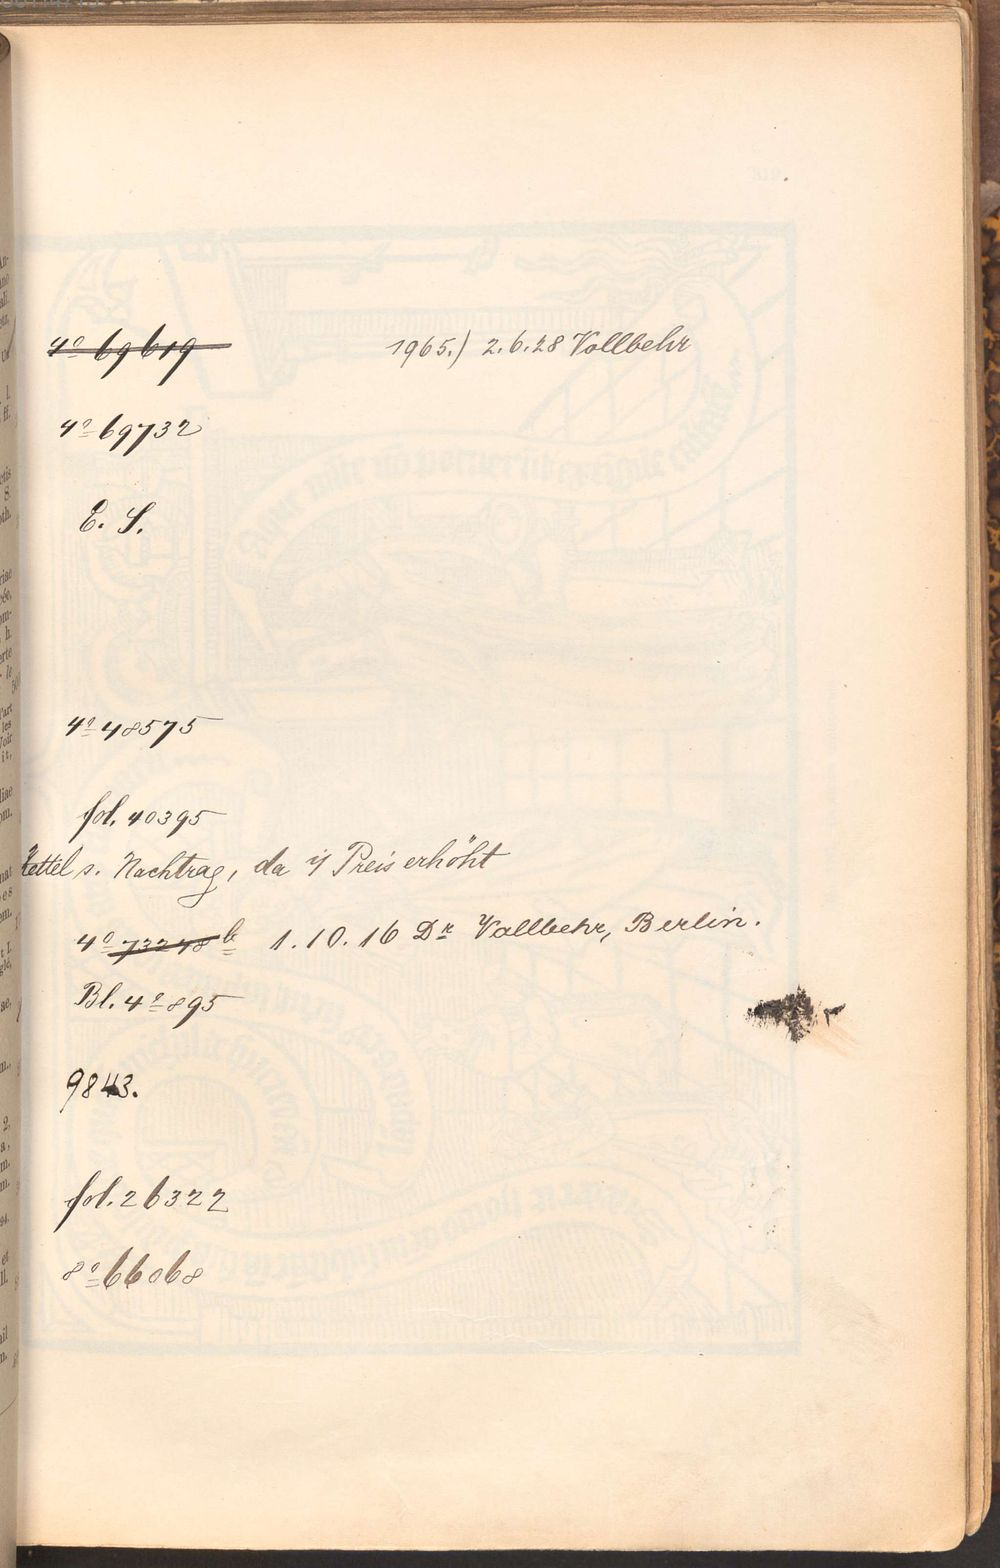 4º 69619 1965.) 2.6.28 Vollbehr
4º 69732
E. S.
4º 48575
fol. 40395
Zettel s. Nachtrag, da Preis erhöht
4º 73248 b 1.10.16 Dr Vollbehr, Berlin.
Bl. 4º 895
9843.
fol. 26322
8º 66068